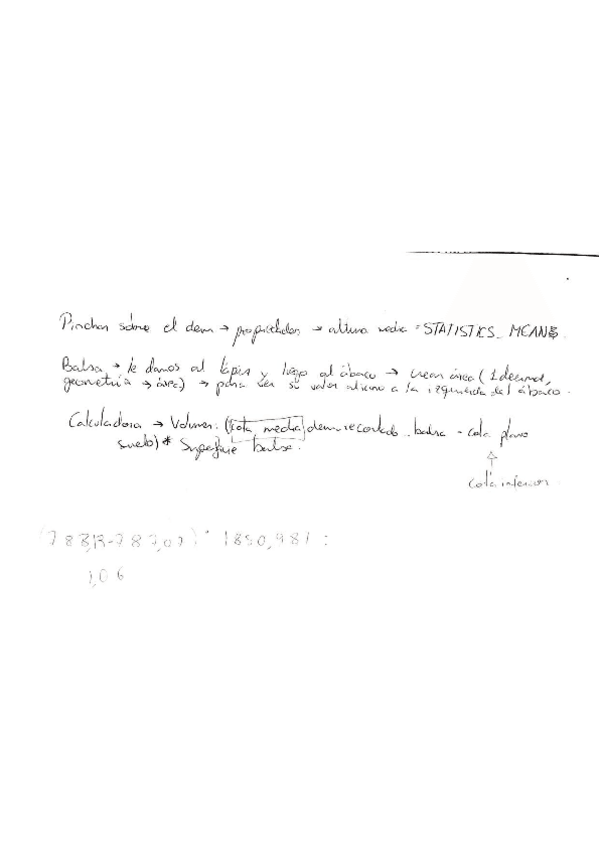 Pinchar sobre el dem → propiedades → altura media = STATISTICS_MEAN
Balsa → le damos al lápiz y luego al ábaco → crear área (1 decimal,
geometría → área) → para ver su valor a la izquierda del ábaco.
Calculadora → Volumen: (cota media dem recortado balsa - cota plano
suelo) * Superficie balsa.
cota inferior
(788,13-787,07) * 1850,981 :
1,06